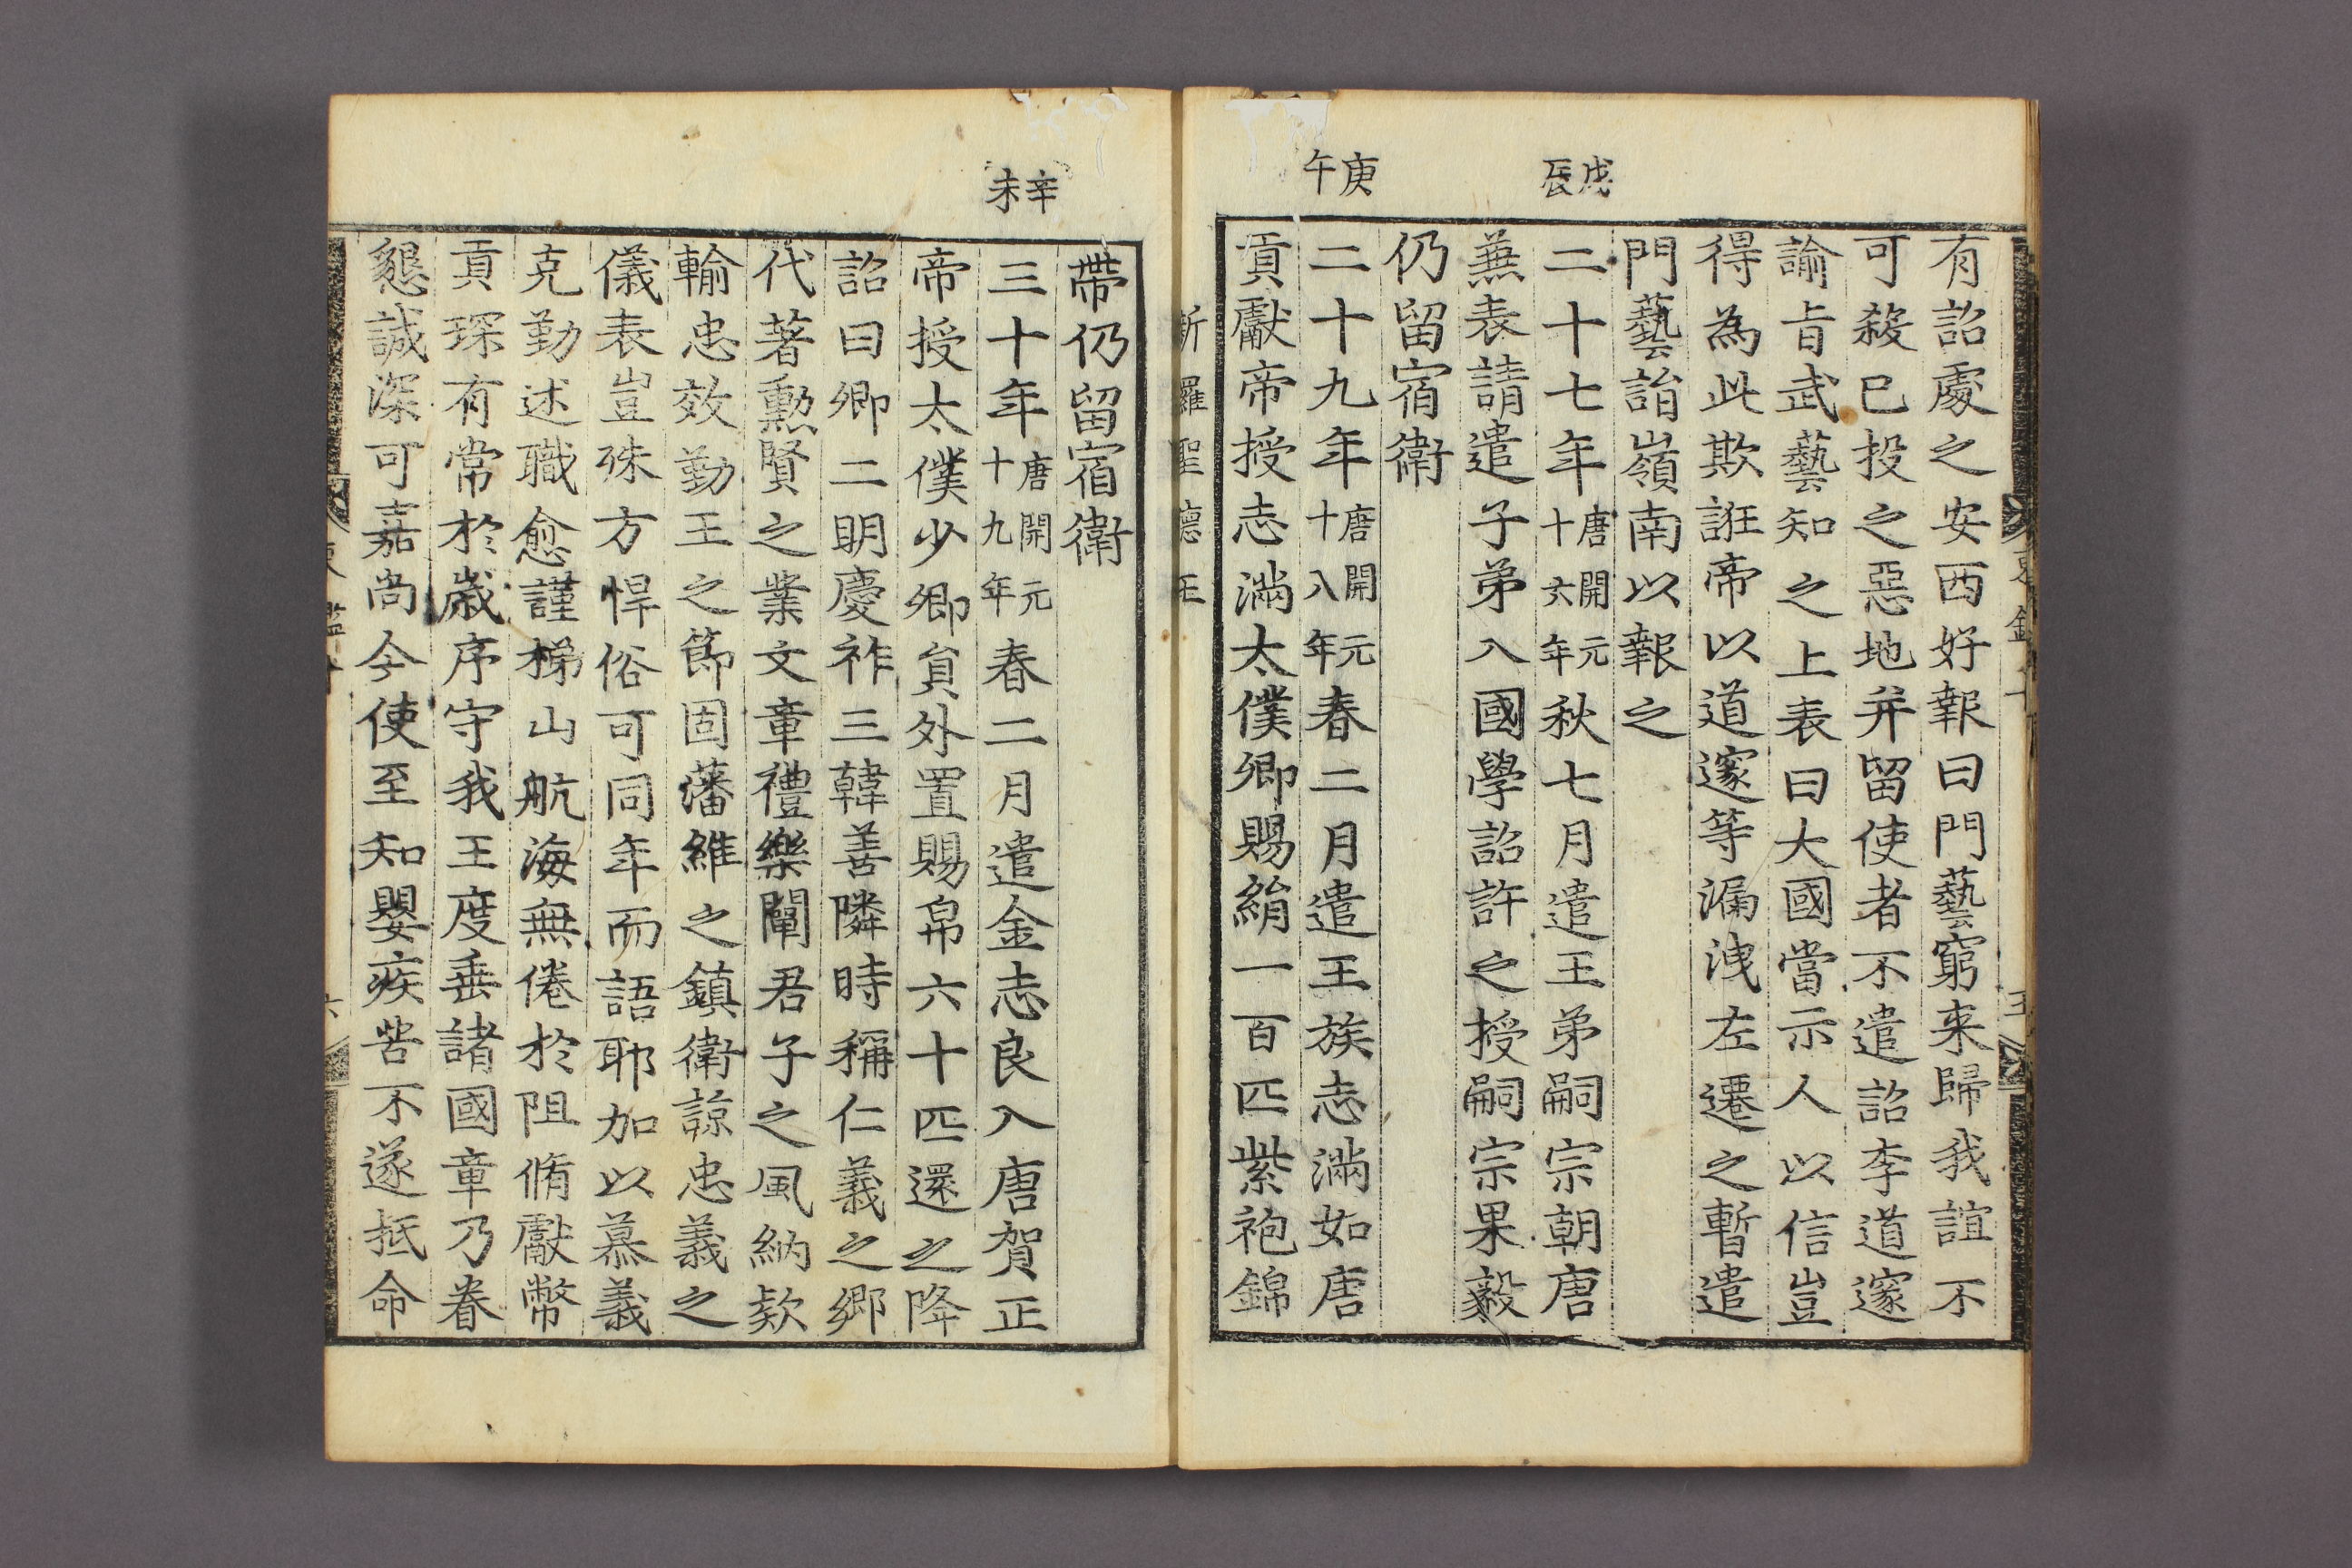 戊辰
庚午
有詔處之安西好報曰門藝窮来歸我誼不
可殺已投之惡地并留使者不遣詔李道邃
諭旨武藝知之上表曰大國當示人以信豈
得為此欺誑帝以道邃等漏洩左遷之暫遣
門藝詣嶺南以報之
二十七年唐開元十六年秋七月遣王弟嗣宗朝唐
兼表請遣子弟入國學詔許之授嗣宗果毅
仍留宿衛
二十九年唐開元十八年春二月遣王族志滿如唐
貢獻帝授志滿太僕卿賜絹一百匹紫袍錦
新羅聖德王
辛未
帶仍留宿衛
三十年唐開元十九年春二月遣金志良入唐賀正
帝授太僕少卿貟外置賜帛六十匹還之降
詔曰卿二明慶祚三韓善隣時稱仁義之鄉
代著勲賢之業文章禮樂闡君子之風納欵
輸忠效勤王之節固藩維之鎮衛諒忠義之
儀表豈殊方悍俗可同年而語耶加以慕義
克勤述職愈謹梯山航海無倦於阻脩獻幣
貢琛有常於歲序守我王度垂諸國章乃眷
懇誠深可嘉尚今使至知嬰疾苦不遂抵命